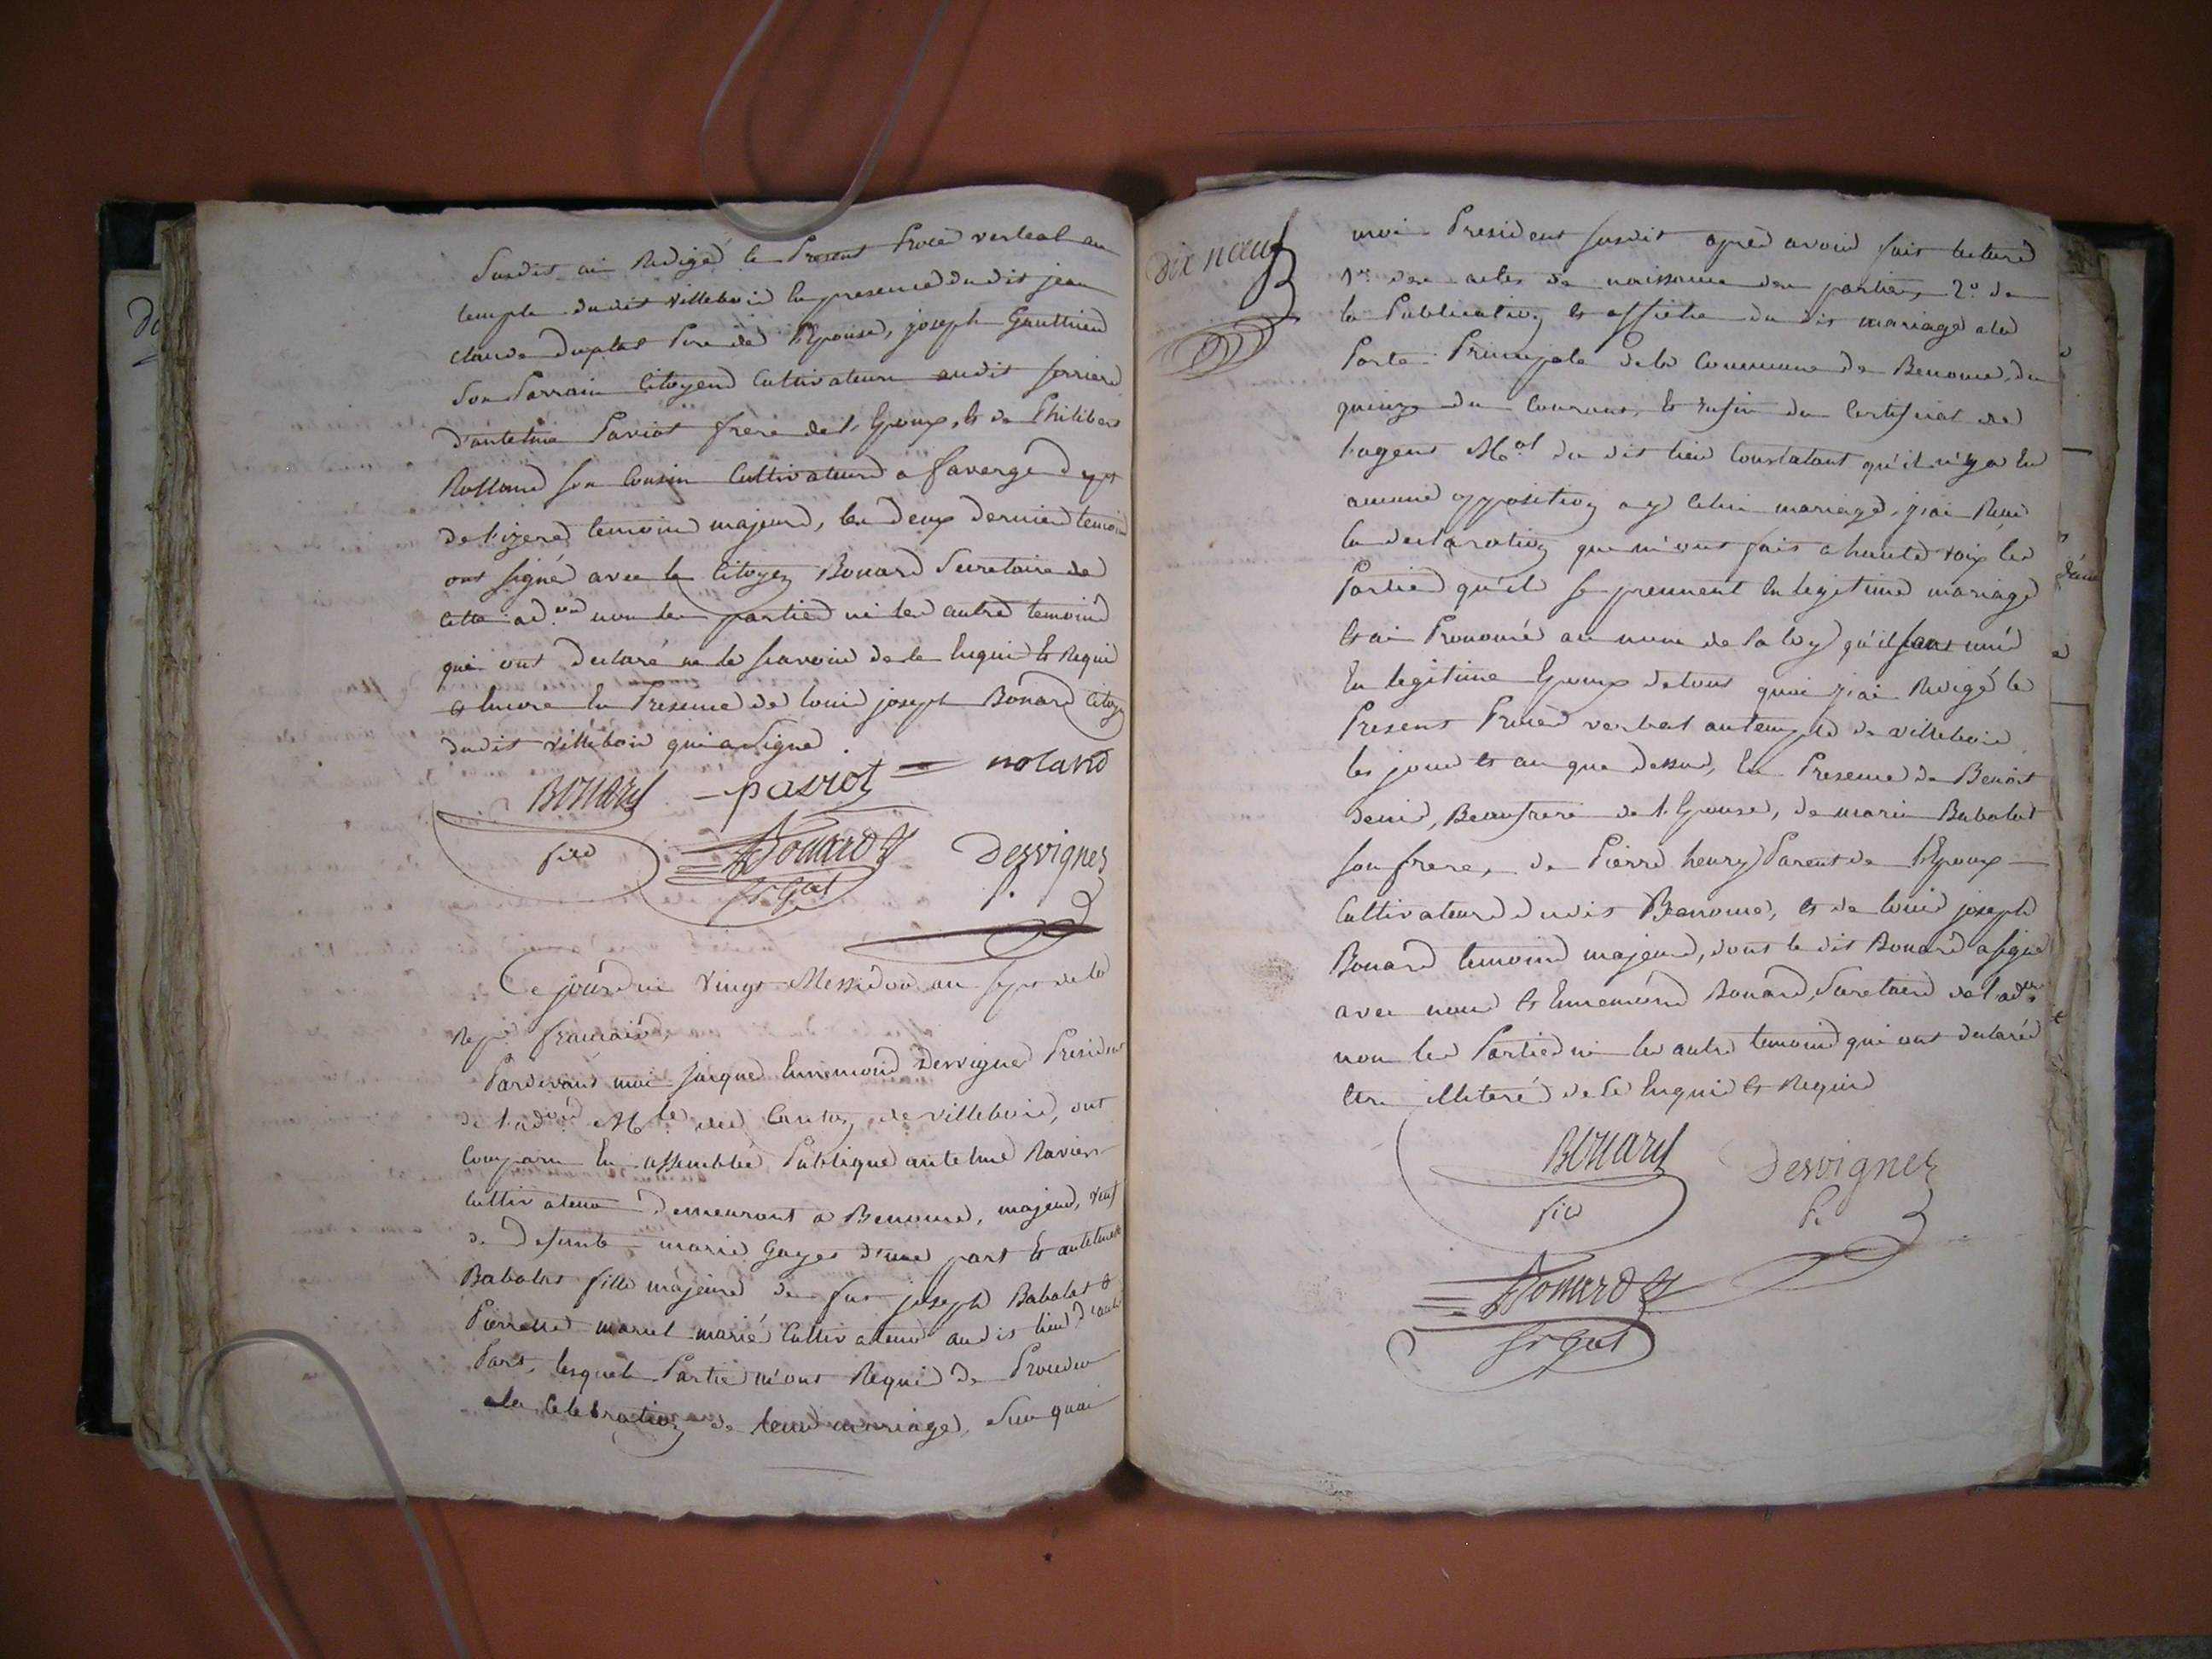 Susdit ai Redigé le Present Procès verbal au
temple dudit Villebois En presence dudit jean
claude Duplat Pere de l'Epouse, joseph Gauthier
Son Parrain Citoyens Cultivateurs audit
d'antelme Paviot frere de l'Epoux, et de Philibert
Rolland son Cousin Cultivateurs a faverge dept
de l'izere temoins majeurs, les deux derniers temoins
ont signés avec le Citoyen Bonard Secretaire de
Cette ad.on non les parties ni les autres temoins
qui ont declaré ne le scavoir de ce Enquis et Requis
et Encore En Presence de louis joseph Bonard Citoyen
dudit Villebois qui a Signé.
Bonard paviot roland
fils Bonard Desvignes
P.
Ce jourd'hui Vingt Messidor an sept de la
Rep. francaise
Pardevant moi jacques Ennemond Desvignes President
de l'ad.on M.le du Canton de villebois, ont
Comparu En assemblée Publique antelme Ravier
Cultivateur Demeurant a Benonce, majeur, veuf
de Defunte marie Gayes d'une part et antelmette
Babolat fille majeure de fut joseph Babolat et
Pierrette marcel mariés Cultivateurs audit lieu d'autre
Part, lesquels Parties m'ont Requis de Proceder
a la Celebration de leurs mariage, Sur quoi
dix neuf
moi President susdit après avoir fait lecture
1.º des actes de naissance des parties, 2.º de
la Publication et affiche du dit mariage a la
Porte Principale de la Commune de Benonce, du
quinze du Courant, et enfin du Certificat de
l'agent M.al du dit lieu Constatant qu'il n'y a Eu
aucune opposition a y celui mariage, j'ai Recu
la declaration que m'ont fait a haute voix les
Parties qu'ils se prennent En legitime mariage
et ai Prononcé au nom de la loy qu'ils sont unis
En legitime Epoux de tout quoi j'ai Redigé le
Present Procès verbal au temple de villebois
les jour et an que dessus, En Presence de Benoit
denis, Beaufrere de l'Epouse, de marin Babolat
son frere, de Pierre henry Parent de l'Epoux
Cultivateurs dudit Benonce, et de louis joseph
Bonard temoins majeurs, dont le dit Bonard a signé
avec nous et Ennemond Bonard, Secretaire de l'ad.on
non les Parties ni les autres temoins qui ont declarés
etre illeterés de Ce Enquis et Requis
Bonard Desvignes
fils P.
Bonard